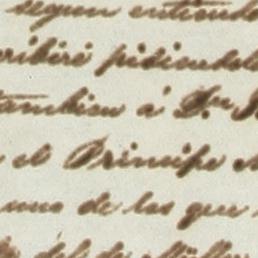 segun entiendo
cribiré pidiendole
tambien á Dn
el Principe
uno de los que